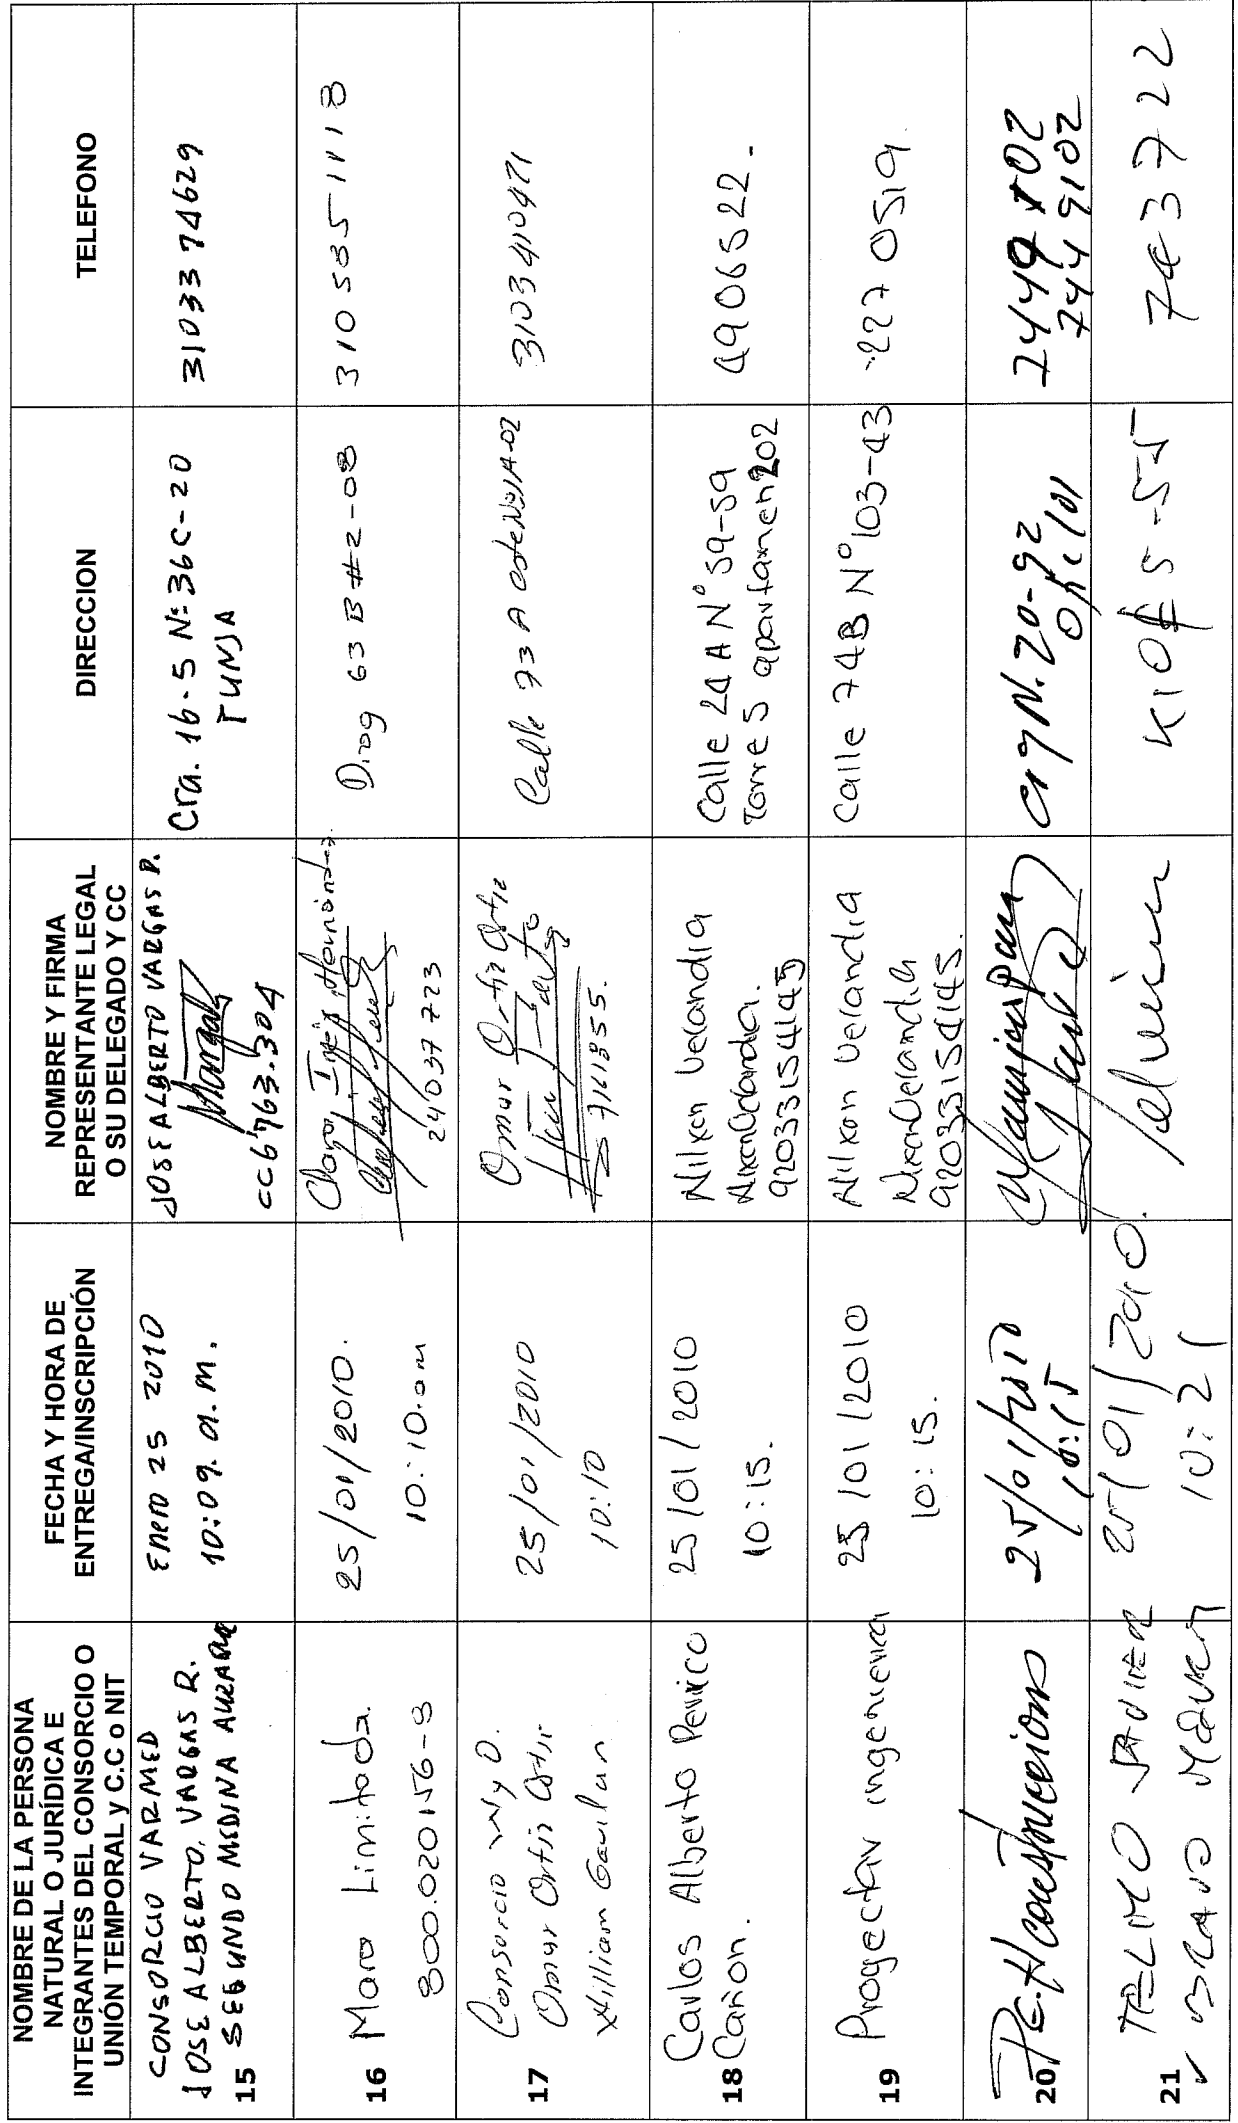 NOMBRE DE LA PERSONA
NATURAL O JURÍDICA E
INTEGRANTES DEL CONSORCIO O
UNIÓN TEMPORAL y C.C o NIT
FECHA Y HORA DE
ENTREGA/INSCRIPCIÓN
NOMBRE Y FIRMA
REPRESENTANTE LEGAL
O SU DELEGADO Y CC
DIRECCION
TELEFONO
CONSORCIO VARMED
JOSE ALBERTO. VARGAS R.
15 SEGUNDO MEDINA
Enero 25 2010
10:09. a.m.
JOSE ALBERTO VARGAS R.
CC 6'763.304
Cra. 16-5 Nº 36C-20
TUNJA
3103374629
16 Maro Limitada.
800.020156-8
25/01/2010.
10:10.am
Clara Inés Hernández
24037723
Diag 63 B #2-08
3105851113
17
Consorcio W y O.
Omar Ortiz Ortiz
William Gavilan
25/01/2010
10:10
Omar Ortiz Ortiz
Calle 73 A
3103410471
18
Carlos Alberto
Cañon.
25/01/2010
10:15.
Nilxon Velandia
Nilxon Velandia.
92033154145
Calle 24 A Nº 59-59
Torre 5 apartamen 202
4906522.
19 Progectar ingenieria
25/01/2010
10:15.
Nilxon Velandia
Nixon Velandia
92033154145.
Calle 74B Nº 103-43
227 0519.
20. Construcciones
25/01/2010
10:15
N. 20-92
Ofc 101
7449102
21
TELMO JAVIER
BRAVO
25/01/2010.
10:21
5-55
743722